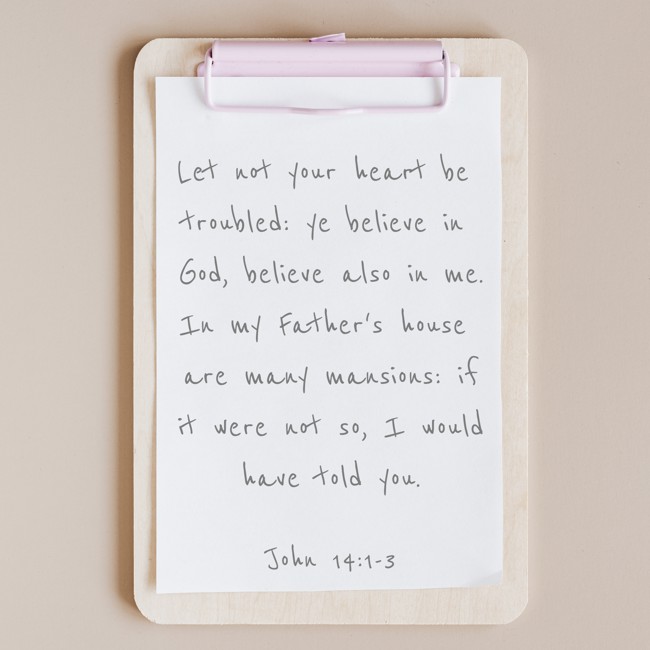 Let not your heart be
troubled: ye believe in
God, believe also in me.
In my Father's house
are many mansions: if
it were not so, I would
have told you.
John 14:1-3